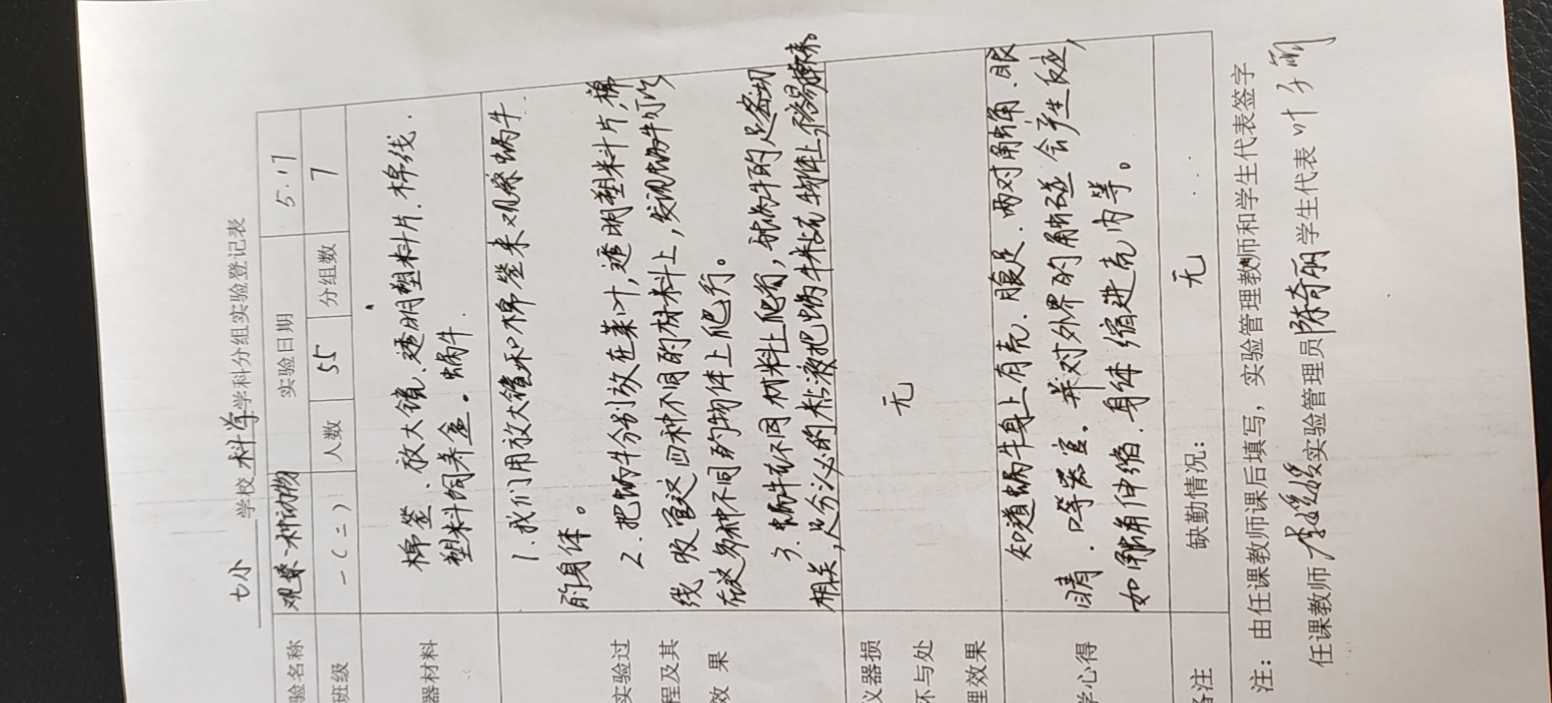 七小 学校 科学 学科分组实验登记表
验名称 观察一种动物 实验日期 5.17
班级 一(二) 人数 55 分组数 7
器材料 棉签、放大镜、透明塑料片、棉线.
塑料饲养盒。蜗牛.
1.我们用放大镜和棉签来观察蜗牛
的身体。
实验过 2.把蜗牛分别放在菜叶,透明塑料片,棉
程及其 线 这四种不同的材料上,发现蜗牛可以
效 果 在这多种不同的物体上爬行。
3.蜗牛在不同材料上爬行,跟蜗牛的足密切
相关,足分泌的粘液把蜗牛粘在物体上,不容易摔来。
仪器损
坏与处 无
理效果
知道蜗牛身上有壳.腹足.两对触角.眼
学心得 睛.口等器官。并对外界的触碰会产生反应,
如触角伸缩.身体缩进壳内等。
备注 缺勤情况: 无
注:由任课教师课后填写,实验管理教师和学生代表签字
任课教师 李媛媛 实验管理员 陈奇丽 学生代表 叶子